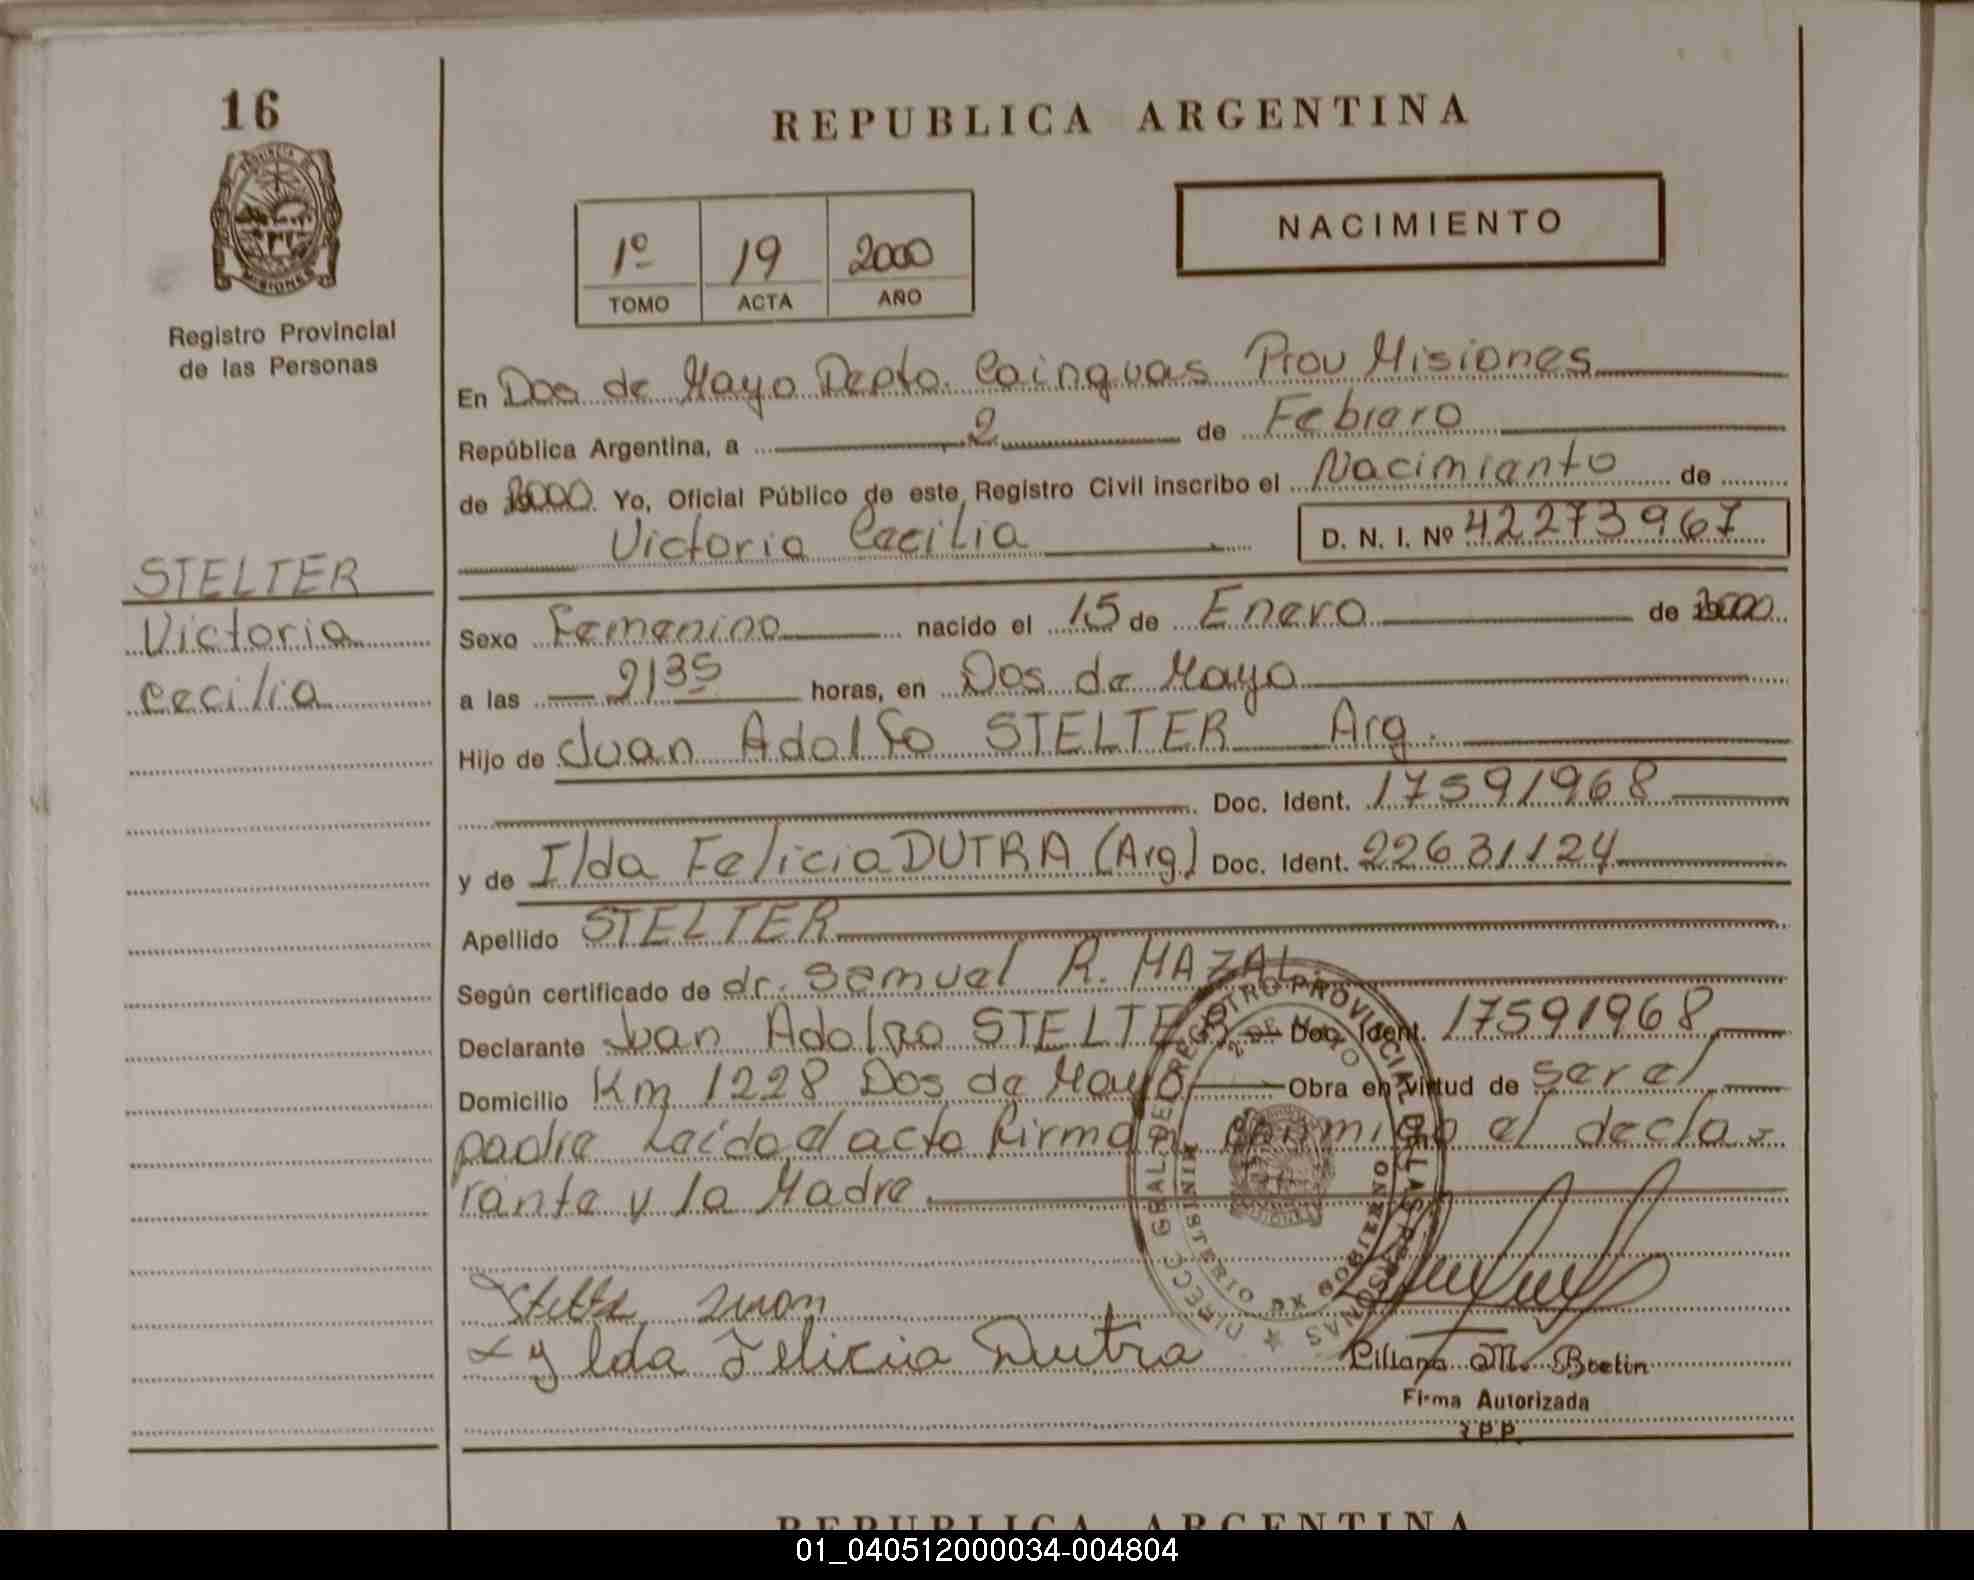 16
REPUBLICA ARGENTINA
PROVINCIA DE MISIONES
Registro Provincial
de las Personas
1º 19 2000
TOMO ACTA AÑO
NACIMIENTO
En Dos de Mayo Depto. Cainguas Prov Misiones
República Argentina, a 2 de Febrero
de 2000. Yo, Oficial Público de este Registro Civil inscribo el Nacimiento de
Victoria Cecilia D. N. I. Nº 42273967
STELTER
Victoria
Cecilia
Sexo Femenino nacido el 15 de Enero de 2000
a las 2135 horas, en Dos de Mayo
Hijo de Juan Adolfo STELTER Arg.
Doc. Ident. 17591968
y de Ilda Felicia DUTRA (Arg) Doc. Ident. 22631124
Apellido STELTER
Según certificado de dr. Samuel R. MAZAL
Declarante Juan Adolfo STELTER Doc. Ident. 17591968
Domicilio Km 1228 Dos de Mayo Obra en virtud de ser el
padre Leída el acta firman conmigo el decla-
rante y la Madre.
DIRECC GRAL DEL REGISTRO PROVINCIAL DE LAS PERSONAS
2 DE MAYO
MINISTERIO DE GOBIERNO
Stelter Juan
y lda Felicia Dutra
Liliana M. Boetin
Firma Autorizada
REPUBLICA ARGENTINA
01_040512000034-004804